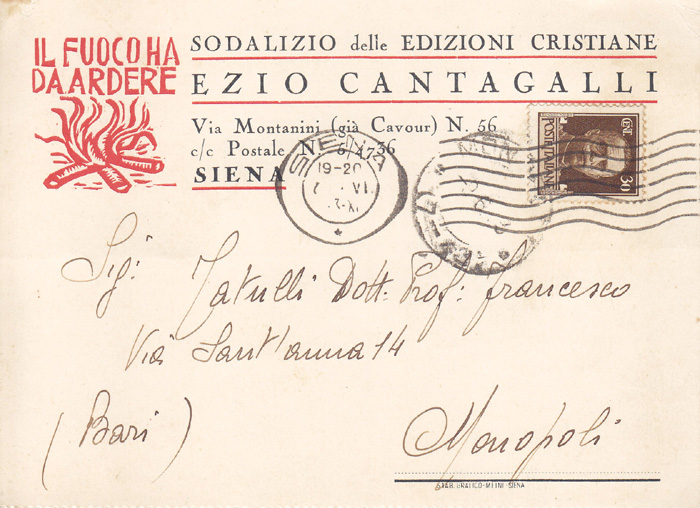 IL FUOCO HA
DA ARDERE
SODALIZIO delle EDIZIONI CRISTIANE
EZIO CANTAGALLI
Via Montanini (già Cavour) N. 56
c/c Postale N. 36
SIENA
SIENA
19-20
VI
CENT. 30
POSTE ITALIANE
Sig: Tatulli Dott. Prof: francesco
Via Sant'anna 14
(Bari) Monopoli
STAB. GRAFICO-MEINI-SIENA